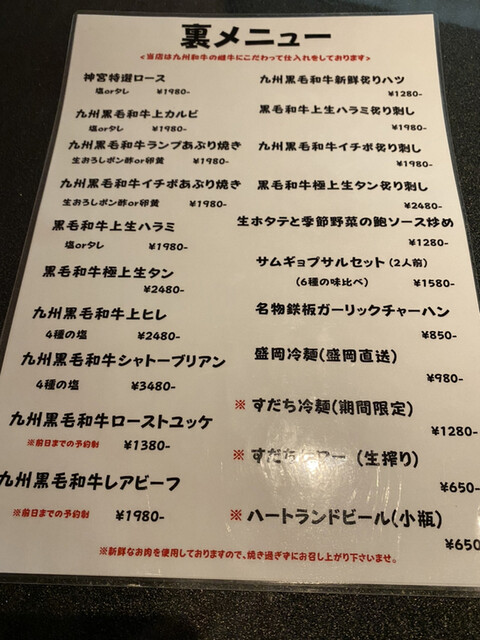 裏メニュー
<当店は九州和牛の雌牛にこだわって仕入れをしております>
神宮特選ロース
塩orタレ ¥1980-
九州黒毛和牛上カルビ
塩orタレ ¥1980-
九州黒毛和牛ランプあぶり焼き
生おろしポン酢or卵黄 ¥1980-
九州黒毛和牛イチボあぶり焼き
生おろしポン酢or卵黄 ¥1980-
黒毛和牛上生ハラミ
塩orタレ ¥1980-
黒毛和牛極上生タン
¥2480-
九州黒毛和牛上ヒレ
4種の塩 ¥2480-
九州黒毛和牛シャトーブリアン
4種の塩 ¥3480-
九州黒毛和牛ローストユッケ
※前日までの予約制 ¥1380-
九州黒毛和牛レアビーフ
※前日までの予約制 ¥1980-
九州黒毛和牛新鮮炙りハツ
¥1280-
黒毛和牛上生ハラミ炙り刺し
¥1980-
九州黒毛和牛イチボ炙り刺し
¥1980-
黒毛和牛極上生タン炙り刺し
¥2480-
生ホタテと季節野菜の鮑ソース炒め
¥1280-
サムギョプサルセット(2人前)
(6種の味比べ) ¥1580-
名物鉄板ガーリックチャーハン
¥850-
盛岡冷麺(盛岡直送)
¥980-
※ すだち冷麺(期間限定)
¥1280-
※ すだち ワー(生搾り)
¥650-
※ ハートランドビール(小瓶)
¥650
※新鮮なお肉を使用しておりますので、焼き過ぎずにお召し上がり下さいませ。